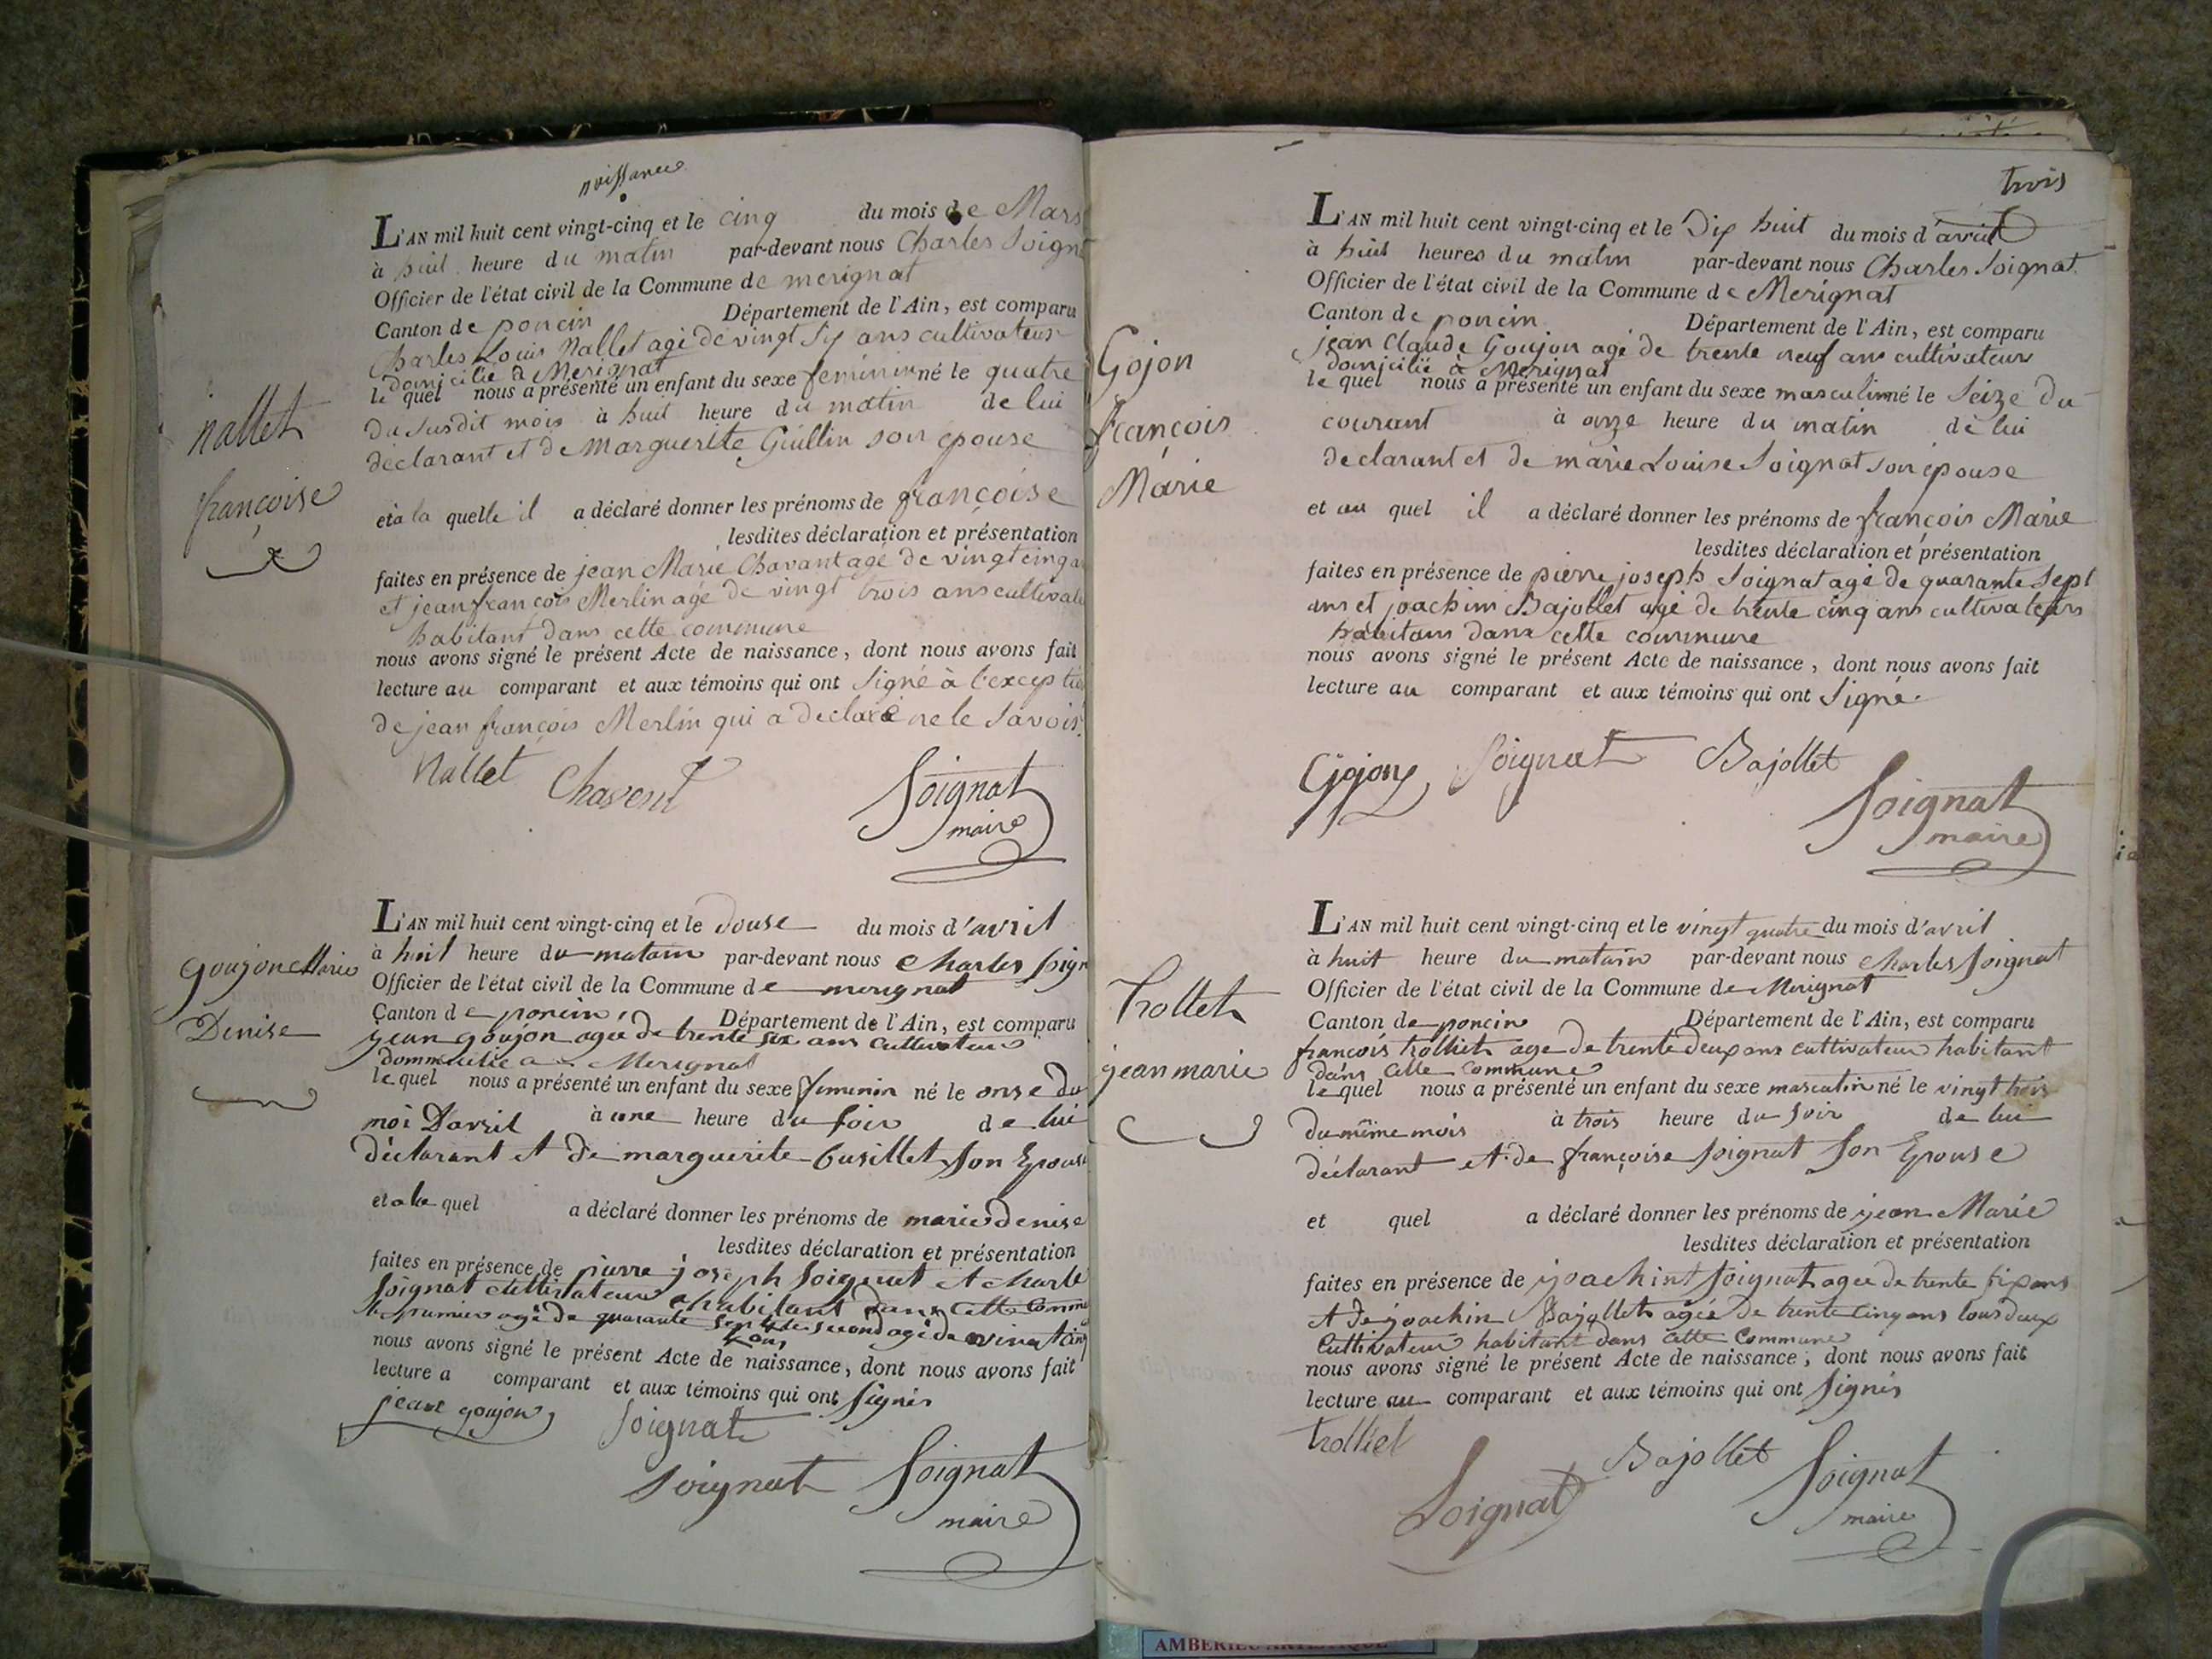 naissance
L'AN mil huit cent vingt-cinq et le cinq du mois de Mars
à huit heure du matin par-devant nous Charles Soign
Officier de l'état civil de la Commune de merignat
Canton de poncin Département de l'Ain, est comparu
Charles Louis Nallet agé de vingt six ans cultivateur
domicilié à Merignat
le quel nous a présenté un enfant du sexe feminin né le quatre
du susdit mois à huit heure du matin de lui
declarant et de Marguerite Guillin son epouse
nallet
françoise
et à la quelle il a déclaré donner les prénoms de françoise
lesdites déclaration et présentation
faites en présence de jean Marie Chavant agé de vingt cinq a
et jean françois Merlin agé de vingt trois ans cultivate
habitant dans cette commune
nous avons signé le présent Acte de naissance, dont nous avons fait
lecture au comparant et aux témoins qui ont signé à l'exceptio
de jean françois Merlin qui a declaré ne le savoir.
Nallet Chavent Soignat
maire
L'AN mil huit cent vingt-cinq et le douse du mois d'avril
à huit heure du matain par-devant nous Charles soign
Officier de l'état civil de la Commune de merignat
Canton de poncin Département de l'Ain, est comparu
jean goujon agée de trente six ans cultivateur
dommicilié a Merignat
goujon Marie
Denise
le quel nous a présenté un enfant du sexe feminin né le onse du
moi D'avril à une heure du soir de lui
déclarant et de marguerite Cusillet son Epouse
et a la quel a déclaré donner les prénoms de marie denise
lesdites déclaration et présentation
faites en présence de pierre joseph soignat et charle
soignat cultivateur habitant dans cette comme
le premier agé de quarante sept le second agé de vingt cinq
ans
nous avons signé le présent Acte de naissance, dont nous avons fait
lecture a comparant et aux témoins qui ont signés
jean goujon Soignat
Soignat Soignat
maire
trois
L'AN mil huit cent vingt-cinq et le Dix huit du mois d'avril
à huit heures du matin par-devant nous Charles Soignat
Officier de l'état civil de la Commune de Merignat
Canton de poncin Département de l'Ain, est comparu
jean Claude Goujon agé de trente neuf ans cultivateur
domicilié à Merignat
Gojon
françois
Marie
le quel nous a présenté un enfant du sexe masculin né le Seize du
courant à onze heure du matin de lui
declarant et de marie Louise Soignat son épouse
et au quel il a déclaré donner les prénoms de françois Marie
lesdites déclaration et présentation
faites en présence de pierre joseph Soignat agé de quarante sept
ans et joachim Bajollet agé de trente cinq ans cultivateurs
habitans dans cette commune
nous avons signé le présent Acte de naissance, dont nous avons fait
lecture au comparant et aux témoins qui ont signé.
Gojon Soignat Bajollet
Soignat
maire
L'AN mil huit cent vingt-cinq et le vingt quatre du mois d'avril
à huit heure du matain par-devant nous charles soignat
Officier de l'état civil de la Commune de Merignat
Canton de poncin Département de l'Ain, est comparu
françois trolliet age de trente deux ans cultivateur habitant
dans cette commune
Trollet
jean marie
le quel nous a présenté un enfant du sexe mascalin né le vingt trois
du même mois à trois heure du soir de lui
déclarant et de françoise soignat son Epouse
et quel a déclaré donner les prénoms de jean Marie
lesdites déclaration et présentation
faites en présence de joachint soignat agée de trente six ans
et de joachin Bajollet agée de trente cinq ans tous deux
cultivateur habitant dans cette commune
nous avons signé le présent Acte de naissance, dont nous avons fait
lecture au comparant et aux témoins qui ont signés
trolliet
Soignat Bajollet Soignat
maire
AMBERIEU ARTISTIQUE